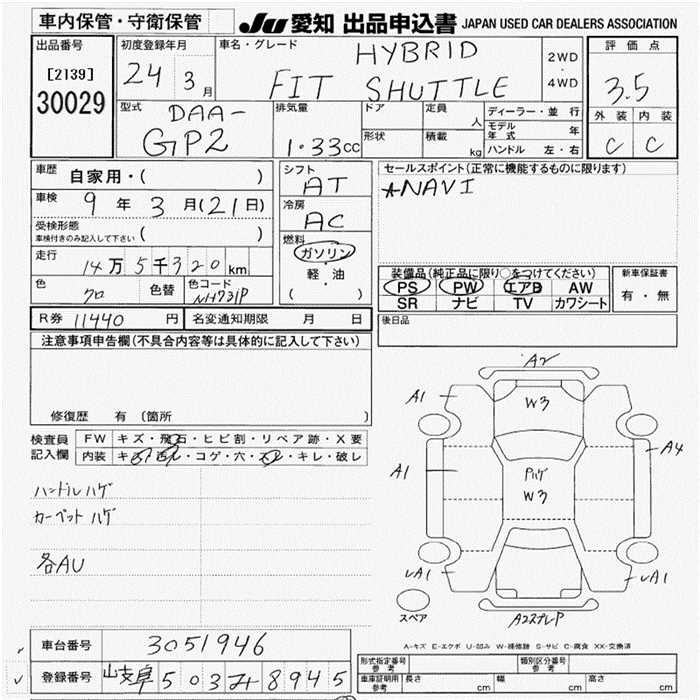 車内保管・守衛保管 JU 愛知 出品申込書 JAPAN USED CAR DEALERS ASSOCIATION
出品番号
[2139]
30029
初度登録年月
24 3月
車名・グレード
HYBRID
FIT SHUTTLE
2WD
・
4WD
評価点
3.5
外装 内装
C C
型式
DAA-
GP2
排気量
1.33cc
ドア
形状
定員
人
積載
kg
ディーラー・並行
モデル年式 年
ハンドル 左・右
車歴
自家用・( )
車検
9年3月(21日)
受検形態
車検付きのみ記入して下さい ( )
走行
14万5千320km
色
クロ
色替
色コード
NH731P
シフト
AT
冷房
AC
燃料
ガソリン
・
軽・油
( )
セールスポイント(正常に機能するものに限ります)
*NAVI
装備品(純正品に限り○をつけてください)
PS PW エアB AW
SR ナビ TV カワシート
新車保証書
有・無
R券 11440 円
名変通知期限 月 日
後日品
注意事項申告欄(不具合内容等は具体的に記入して下さい)
修復歴 有 (箇所 )
検査員
記入欄
FW キズ・飛石・ヒビ割・リペア跡・X要
内装 キズ・汚レ・コゲ・穴・スレ・キレ・破レ
ハンドルハゲ
カーペットハゲ
各AU
A2
A1
W3
A4
A1
Pハゲ
W3
A1
A1
スペア
A2スナレP
A-キズ E-エクボ U-凹み W-補修跡 S-サビ C-腐食 XX-交換済
車台番号
3051946
登録番号
岐阜 503 み 8945
形式指定番号
参考
類別区分番号
参考
車庫証明用
参考
長さ cm 幅 cm 高さ cm